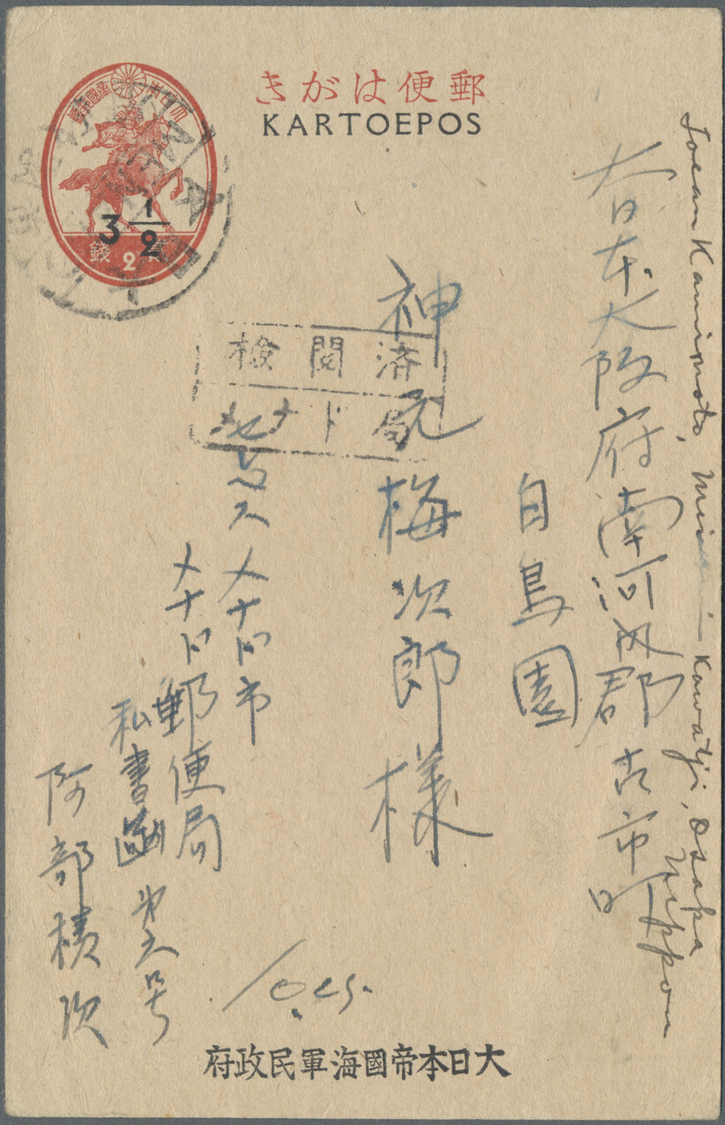 郵便はがき
KARTOEPOS
大日本帝國郵便
3 1/2
貳錢 2
検閲済
メナド局
大日本大阪府南河内郡古市町
白鳥園
神元梅次郎様
セレベス メナド市
メナド郵便局
私書函第六号
阿部積次
Kamimoto,
Kawatji, Osaka
Nippon
大日本帝國海軍民政府